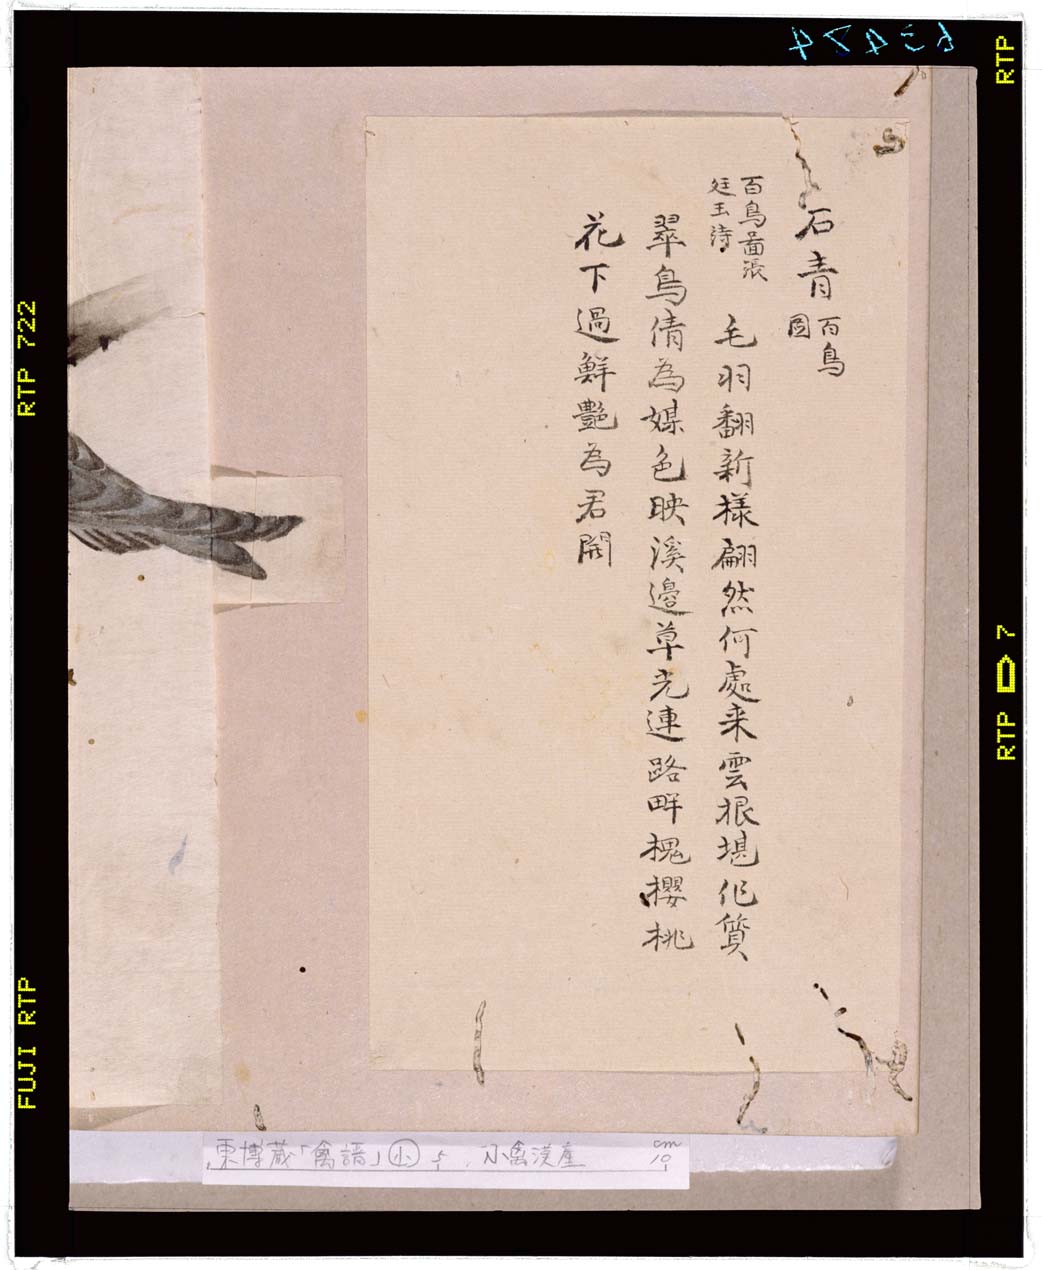 石青 百鳥
圖
百鳥圖張
廷玉詩
毛羽翻新様翩然何處来雲根堪作質
翠鳥倩為媒色映溪邊草光連路畔槐櫻桃
花下過鮮艷為君開
東博蔵「禽譜」小 5 小禽漢産
cm
10
RTP
RTP 722
RTP 7
FUJI RTP